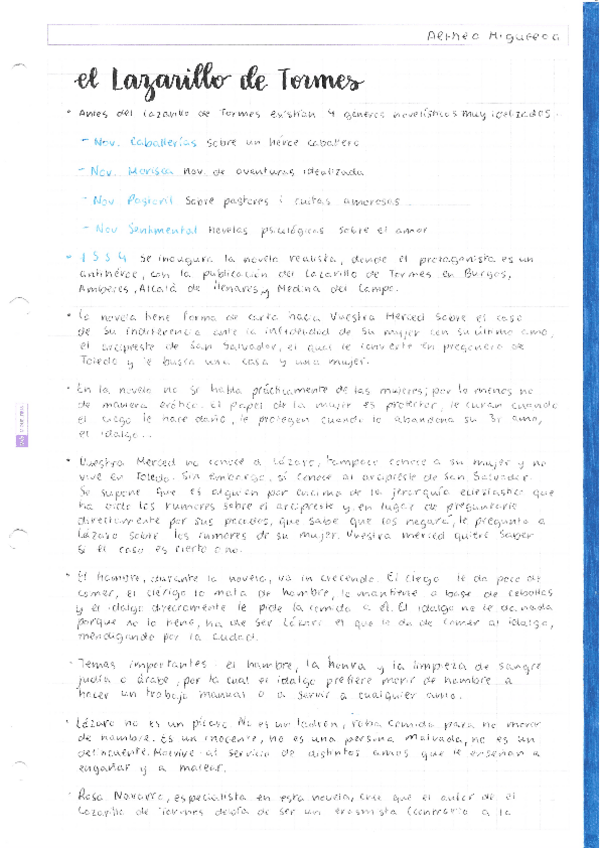 el Lazarillo de Tormes
• Antes del Lazarillo de Tormes existían 4 géneros novelísticos muy idealizados.
- Nov. Caballerías sobre un héroe caballero
- Nov. Morisca nov. de aventuras idealizada
- Nov Pastoril Sobre pastores i cuitas amorosas
- Nov Sentimental Novelas psicológicas sobre el amor
• 1554 Se inaugura la novela realista, donde el protagonista es un
antihéroe, con la publicación del Lazarillo de Tormes en Burgos,
Amberes, Alcalá de Henares y Medina del Campo.
• La novela tiene forma de carta hacia Vuestra Merced sobre el caso
de su indiferencia ante la infidelidad de su mujer con su último amo,
el arcipreste de San Salvador, el cual le convierte en pregonero de
Toledo y le busca una casa y una mujer.
• En la novela no se habla prácticamente de las mujeres; por lo menos no
de manera erótica. El papel de la mujer es protector, le curan cuando
el ciego le hace daño, le protegen cuando lo abandona su 3r amo,
el idalgo...
• Vuestra Merced no conoce a Lázaro, tampoco conoce a su mujer y no
vive en Toledo. Sin embargo, sí conoce al arcipreste de San Salvador.
Se supone que es alguien por encima de la jerarquía eclesiástica que
ha oído los rumores sobre el arcipreste y, en lugar de preguntarle
directamente por sus pecados, que sabe que los negará, le pregunta a
Lázaro sobre los rumores de su mujer. Vuestra merced quiere saber
si el caso es cierto o no.
• El hambre, durante la novela, va in crecendo. El ciego le da poco de
comer, el clérigo lo mata de hambre, lo mantiene a base de cebollas
y el idalgo directamente le pide la comida a él. El idalgo no le da nada
porque no lo tiene, ha de ser Lázaro el que le da de comer al idalgo,
mendigando por la ciudad.
• Temas importantes: el hambre, la honra y la limpieza de sangre
judía o árabe, por la cual el idalgo prefiere morir de hambre a
hacer un trabajo manual o a servir a cualquier amo.
• Lázaro no es un pícaro. No es un ladrón, roba comida para no morir
de hambre. Es un inocente, no es una persona malvada, no es un
delincuente. Malvive al servicio de distintos amos que le enseñan a
engañar y a malear.
• Rosa Navarro, especialista en esta novela, cree que el autor de el
Lazarillo de Tormes debía de ser un erasmista (contrario a la